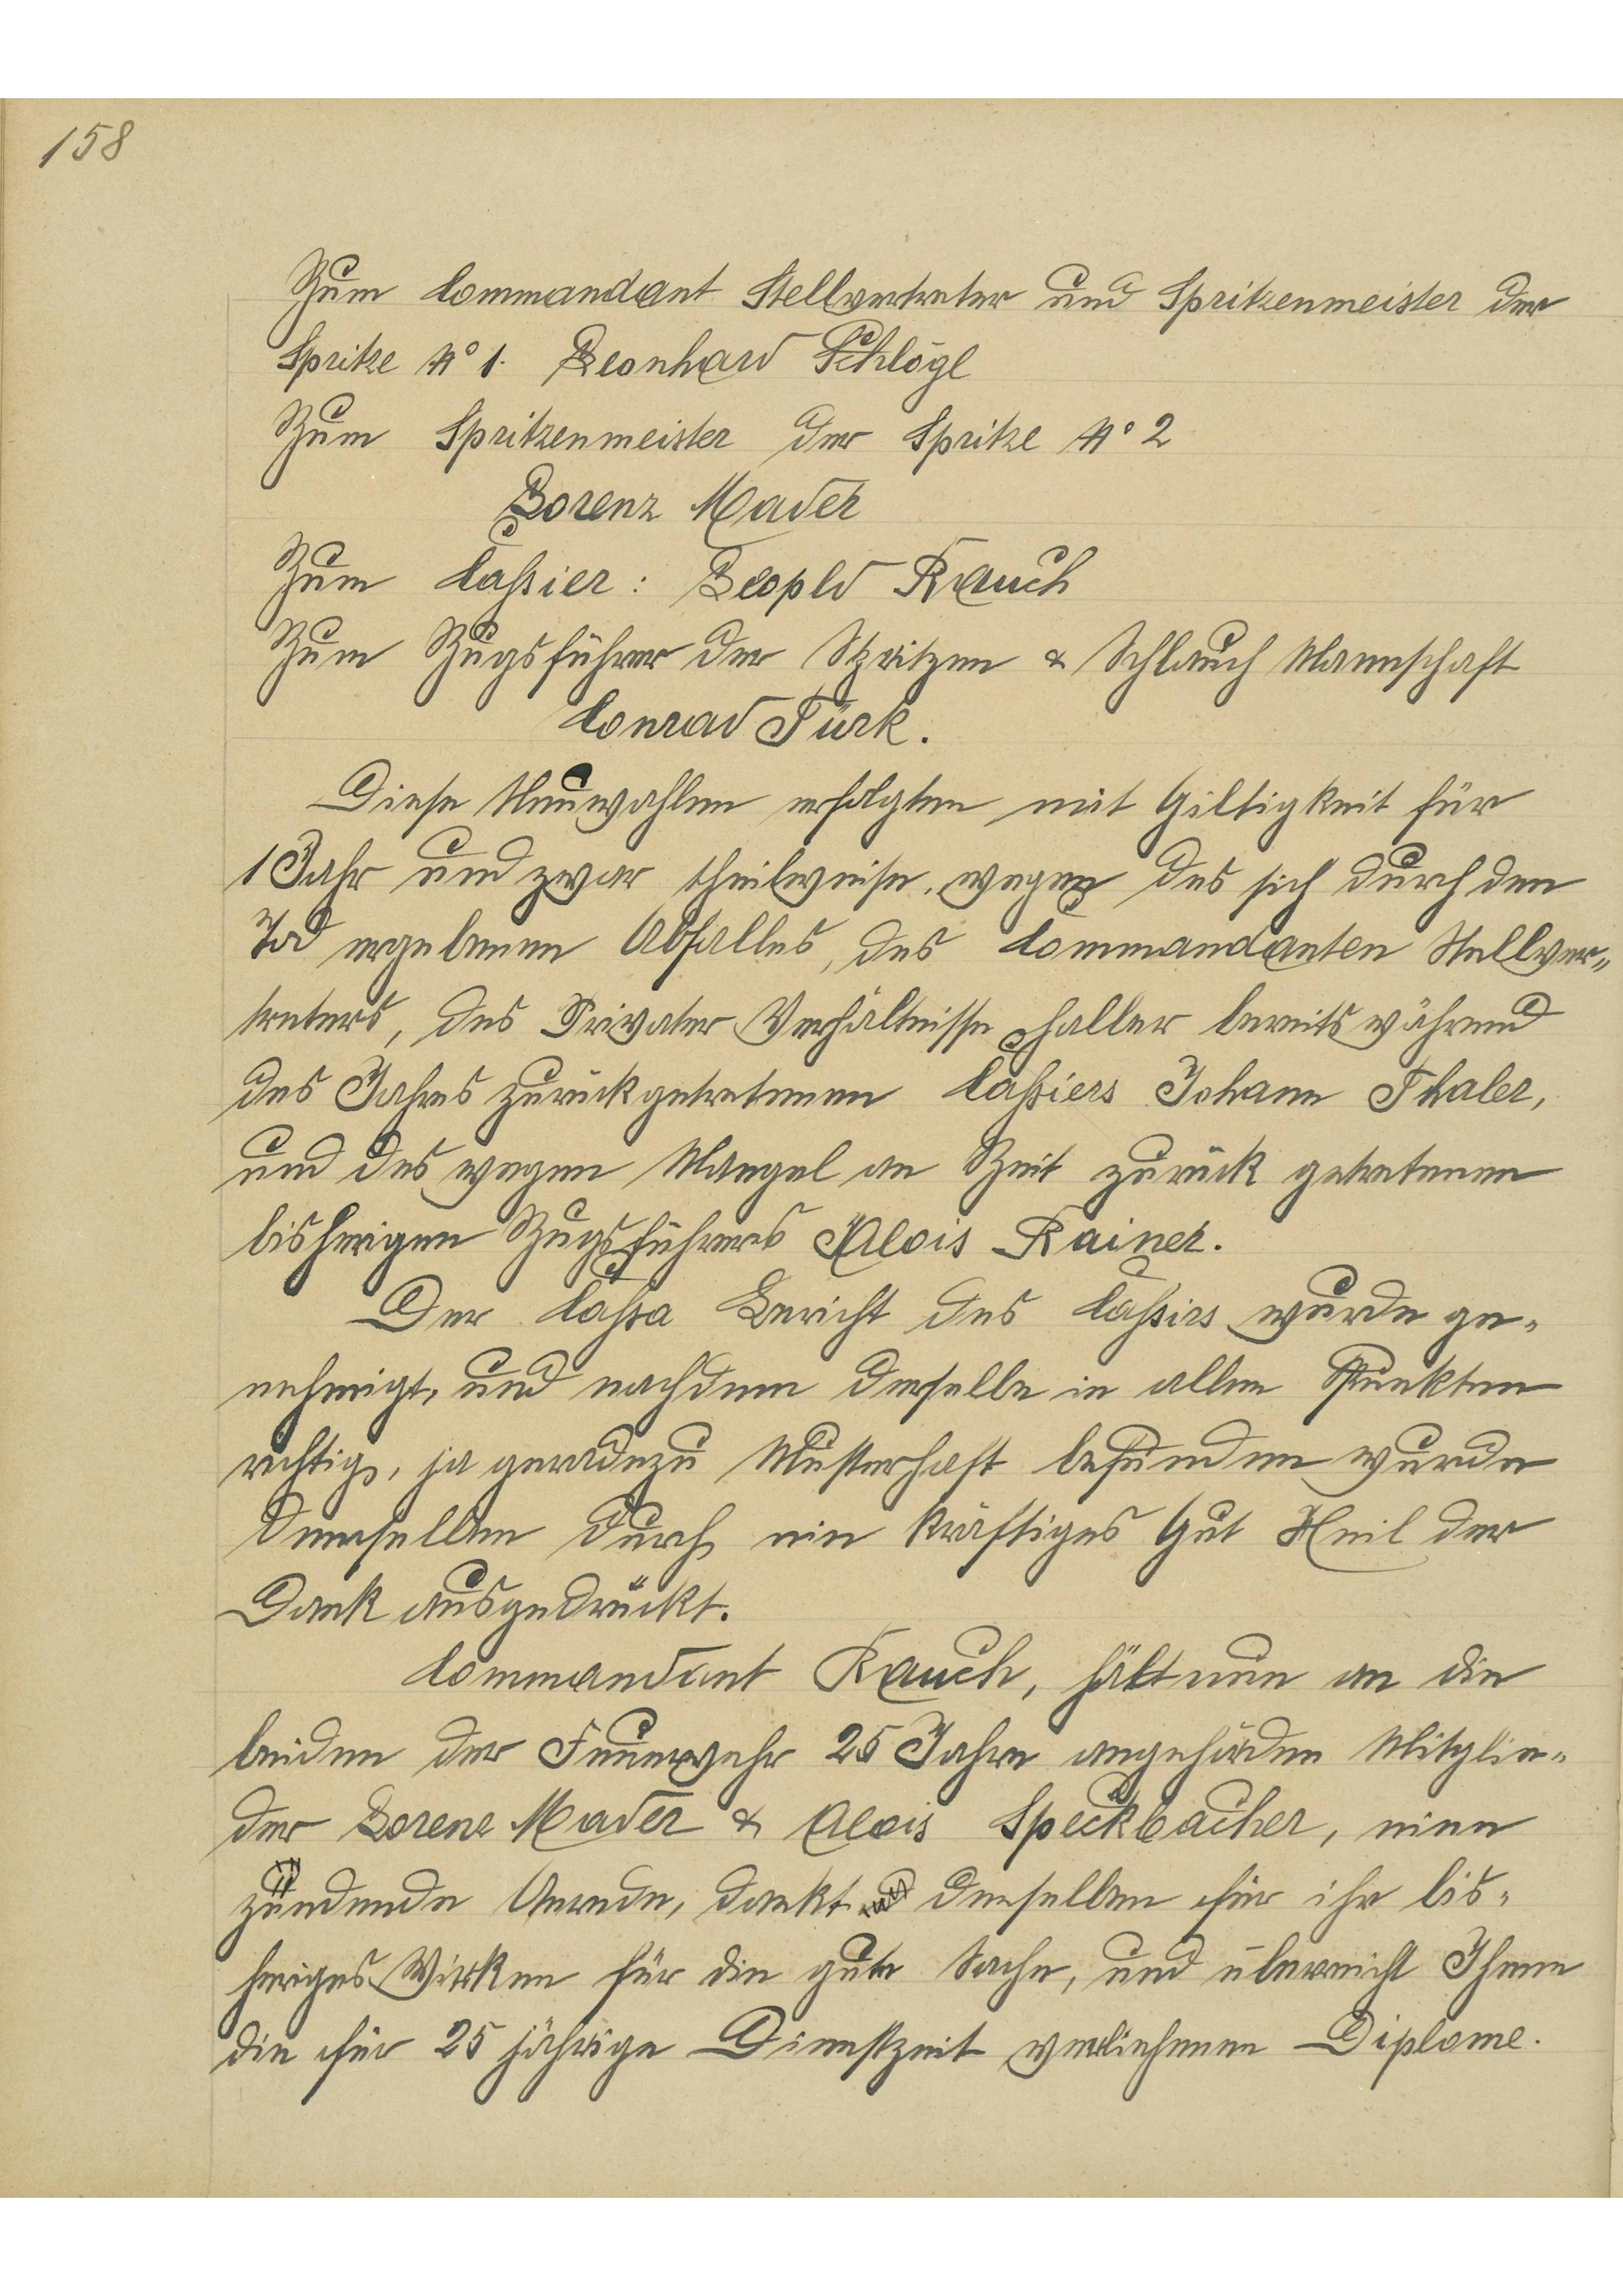 158
Zum Commandant Stellvertreter und Spritzenmeister der
Spritze No 1. Leonhard Schlögl
Zum Spritzenmeister der Spritze No 2
Lorenz Mader
Zum Caßier: Leopld Rauch
Zum Zugsführer der Spritzen & Schlauch Mannschaft
Conrad Türk.
Diese Neuwahlen erfolgten mit Giltigkeit für
1 Jahr und zwar theilweise wegen des sich durch den
Tod ergebenen Abfalles, des Commandanten Stellver„
treters, des Privater Verhältnisse halber bereits während
des Jahres zurückgetretenen Caßiers Johann Thaler,
und des wegen Mangel an Zeit zurück getretenen
bisherigen Zugsführers Alois Rainer.
Der Caßa Bericht des Caßirs wurde ge„
nehmigt, und nachdem derselbe in allen Punkten
richtig, ja geradezu Musterhaft befunden wurde
demselben durch ein kräftiges Gut Heil der
Dank ausgedrückt.
Commandant Rauch, hält nun an die
beiden der Feuerwehr 25 Jahre angehörden Mitglie„
der Lorenz Mader & Alois Speckbacher, eine
zündende Anrede, dankt denselben für ihr bis„
heriges Wirken für die gute Sache, und überreicht Ihnen
die für 25 jährige Dienstzeit verliehenen Diplome.